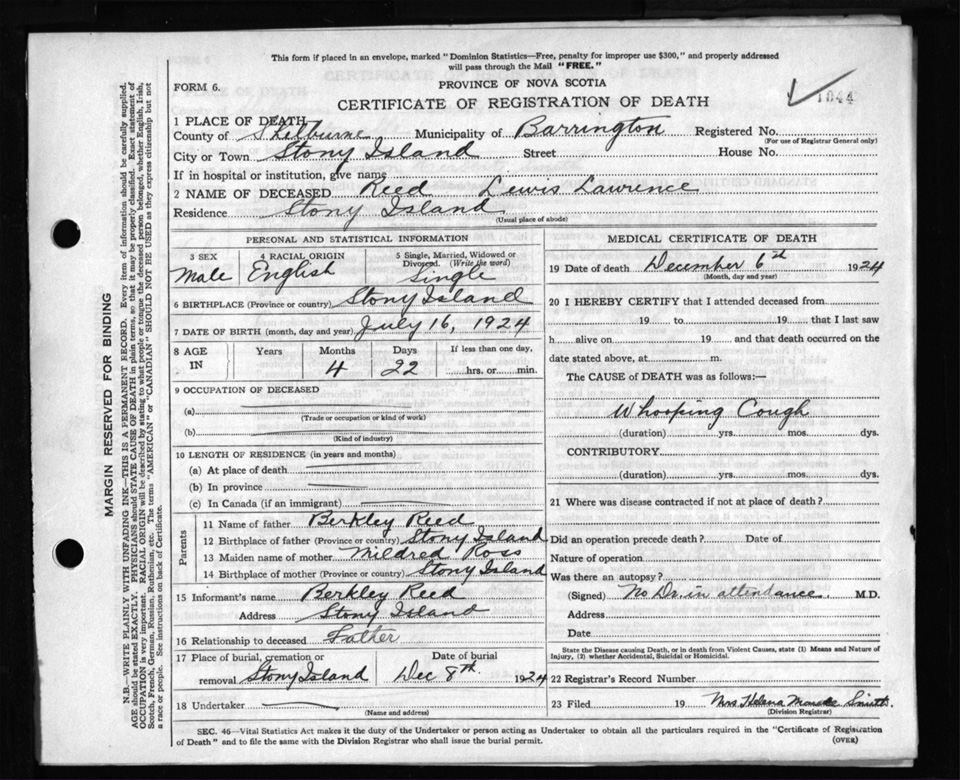 This form if placed in an envelope, marked "Dominion Statistics—Free, penalty for improper use $300," and properly addressed
will pass through the Mail "FREE."
FORM 6.
PROVINCE OF NOVA SCOTIA
CERTIFICATE OF REGISTRATION OF DEATH
1044
1 PLACE OF DEATH
County of Shelburne Municipality of Barrington Registered No.
(For use of Registrar General only)
City or Town Stony Island Street House No.
If in hospital or institution, give name
2 NAME OF DECEASED Reed Lewis Lawrence
Residence Stony Island
(Usual place of abode)
PERSONAL AND STATISTICAL INFORMATION
3 SEX
Male
4 RACIAL ORIGIN
English
5 Single, Married, Widowed or
Divorced. (Write the word)
Single
6 BIRTHPLACE (Province or country) Stony Island
7 DATE OF BIRTH (month, day and year) July 16, 1924
8 AGE
IN
Years
Months
4
Days
22
If less than one day,
hrs. or min.
9 OCCUPATION OF DECEASED
(a)
(Trade or occupation or kind of work)
(b)
(Kind of industry)
10 LENGTH OF RESIDENCE (in years and months)
(a) At place of death
(b) In province
(c) In Canada (if an immigrant)
Parents
11 Name of father Berkley Reed
12 Birthplace of father (Province or country) Stony Island
13 Maiden name of mother Mildred Ross
14 Birthplace of mother (Province or country) Stony Island
15 Informant's name Berkley Reed
Address Stony Island
16 Relationship to deceased Father
17 Place of burial, cremation or
removal Stony Island
Date of burial
Dec 8th. 1924
18 Undertaker
(Name and address)
MEDICAL CERTIFICATE OF DEATH
19 Date of death December 6th 1924
(Month, day and year)
20 I HEREBY CERTIFY that I attended deceased from
19 to 19 that I last saw
h alive on 19 and that death occurred on the
date stated above, at m.
The CAUSE of DEATH was as follows:—
Whooping Cough
(duration) yrs. mos. dys.
CONTRIBUTORY
(duration) yrs. mos. dys.
21 Where was disease contracted if not at place of death?
Did an operation precede death? Date of
Nature of operation
Was there an autopsy?
(Signed) No Dr. in attendance. M.D.
Address
Date
State the Disease causing Death, or in death from Violent Causes, state (1) Means and Nature of
Injury, (2) whether Accidental, Suicidal or Homicidal.
22 Registrar's Record Number
23 Filed 19 Mrs Helena Smith.
(Division Registrar)
SEC. 46—Vital Statistics Act makes it the duty of the Undertaker or person acting as Undertaker to obtain all the particulars required in the "Certificate of Registration
of Death" and to file the same with the Division Registrar who shall issue the burial permit.
(OVER)
MARGIN RESERVED FOR BINDING
N.B.—WRITE PLAINLY WITH UNFADING INK—THIS IS A PERMANENT RECORD. Every item of information should be carefully supplied.
AGE should be stated EXACTLY. PHYSICIANS should STATE CAUSE OF DEATH in plain terms, so that it may be properly classified. Exact statement of
OCCUPATION is very important. RACIAL ORIGIN will be described by stating to what people or tongue the deceased person belonged, whether English, Irish,
Scotch, French, German, Russian, Ruthenian, etc. The terms "AMERICAN" or "CANADIAN" SHOULD NOT BE USED as they express citizenship but not
a race or people. See instructions on back of Certificate.